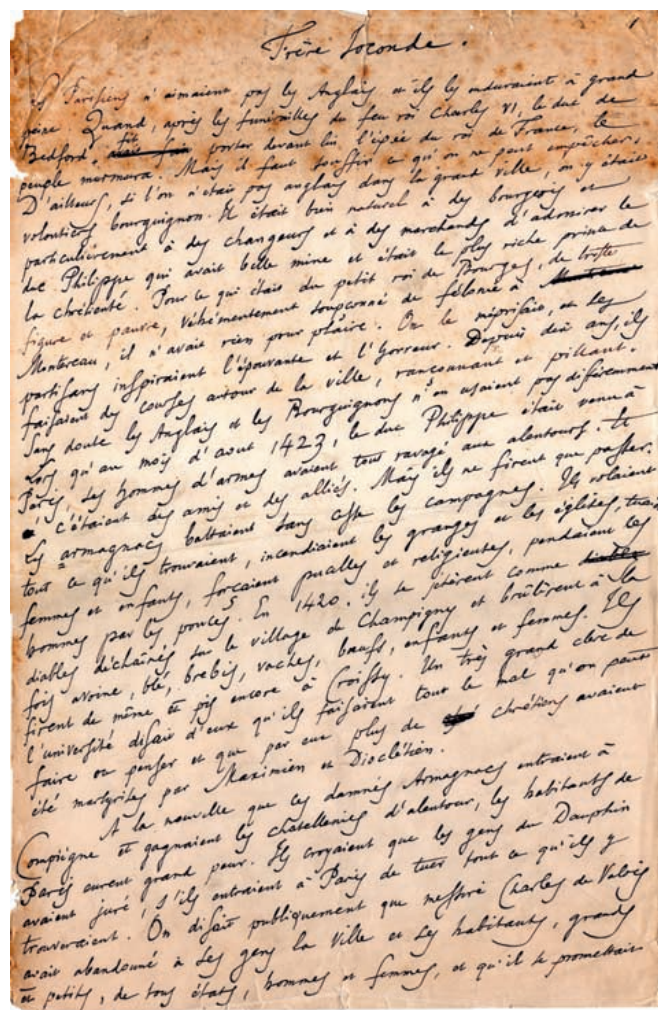 1
Frère Joconde.
Les Parisiens n'aimaient pas les Anglais et ils les enduraient à grand
peine. Quand, après les funérailles du feu roi Charles VI, le duc de
Bedford, fit porter devant lui l'épée du roi de France, le
peuple murmura. Mais il faut souffrir ce qu'on ne peut empêcher.
D'ailleurs, si l'on n'était pas anglais dans la grand ville, on y était
volontiers bourguignon. Il était bien naturel à des bourgeois et
particulièrement à des changeurs et à des marchands d'admirer le
duc Philippe qui avait belle mine et était le plus riche prince de
la chrétienté. Pour ce qui était du petit roi de Bourges, de triste
figure et pauvre, véhémentement soupçonné de félonie à
Montereau, il n'avait rien pour plaire. On le méprisait, et ses
partisans inspiraient l'épouvante et l'horreur. Depuis dix ans, ils
faisaient des courses autour de la ville, rançonnant et pillant.
Sans doute les Anglais et les Bourguignons n'en usaient pas différemment
Lors qu'au mois d'aout 1423, le duc Philippe était venu à
Paris, ses hommes d'armes avaient tout ravagé aux alentours. Et
c'étaient des amis et des alliés. Mais ils ne firent que passer.
Les armagnacs battaient sans cesse les campagnes. Ils volaient
tout ce qu'ils trouvaient, incendiaient les granges et les églises, tuaient
femmes et enfants, forçaient pucelles et religieuses, pendaient les
hommes par les pouces. En 1420. ils se jetèrent comme
diables déchaînés sur le village de Champigny et brûlèrent à la
fois avoine, blé, brebis, vaches, bœufs, enfants et femmes. Ils
firent de même et pis encore à Croissy. Un très grand clerc de
l'université disait d'eux qu'ils faisaient tout le mal qu'on peut
faire ou penser et que par eux plus de chrétiens avaient
été martyrisés par Maximien et Dioclétien.
A la nouvelle que ces damnés Armagnacs entraient à
Compiègne et gagnaient les chatellenies d'alentour, les habitants de
Paris eurent grand peur. Ils croyaient que les gens du Dauphin
avaient juré, s'ils entraient à Paris de tuer tout ce qu'ils y
trouveraient. On disait publiquement que messire Charles de Valois
avait abandonné à ses gens la ville et ses habitants, grands
et petits, de tous états, hommes et femmes, et qu'il se promettait